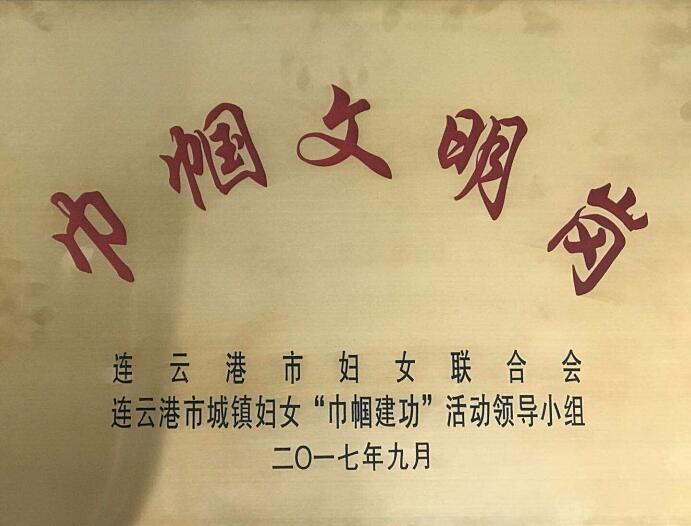 巾帼文明岗
连云港市妇女联合会
连云港市城镇妇女“巾帼建功”活动领导小组
二〇一七年九月